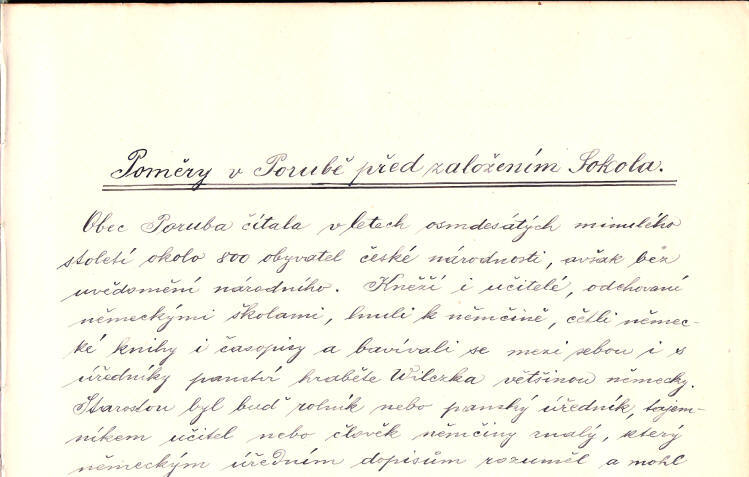 Poměry v Porubě před založením Sokola.
Obec Poruba čítala v letech osmdesátých minulého
století okolo 800 obyvatel české národnosti, avšak bez
uvědomění národního. Kněží i učitelé, odchovaní
německými školami, lnuli k němčině, četli němec-
ké knihy i časopisy a bavívali se mezi sebou i s
úředníky panství hraběte Wilczka většinou německy.
Starostou byl buď rolník nebo panský úředník, tajem-
níkem učitel nebo člověk němčiny znalý, který
německým úředním dopisům rozuměl a mohl